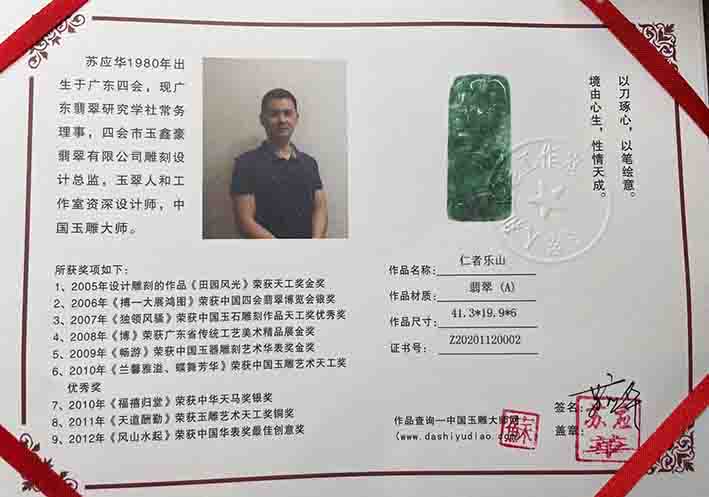 苏应华1980年出
生于广东四会，现广
东翡翠研究学社常务
理事，四会市玉鑫豪
翡翠有限公司雕刻设
计总监，玉翠人和工
作室资深设计师，中
国玉雕大师。
所获奖项如下：
1、2005年设计雕刻的作品《田园风光》荣获天工奖金奖
2、2006年《搏一大展鸿图》荣获中国四会翡翠博览会银奖
3、2007年《独领风骚》荣获中国玉石雕刻作品天工奖优秀奖
4、2008年《博》荣获广东省传统工艺美术精品展金奖
5、2009年《畅游》荣获中国玉器雕刻艺术华表奖金奖
6、2010年《兰馨雅溢、蝶舞芳华》荣获中国玉雕艺术天工奖
优秀奖
7、2010年《福禧归堂》荣获中华天马奖银奖
8、2011年《天道酬勤》荣获玉雕艺术天工奖铜奖
9、2012年《风山水起》荣获中国华表奖最佳创意奖
以刀琢心，以笔绘意。
境由心生，性情天成。
作品名称：仁者乐山
作品材质：翡翠 (A)
作品尺寸：41.3*19.9*6
证书号：Z20201120002
签名：
盖章：
作品查询—中国玉雕大师网
(www.dashiyudiao.com)